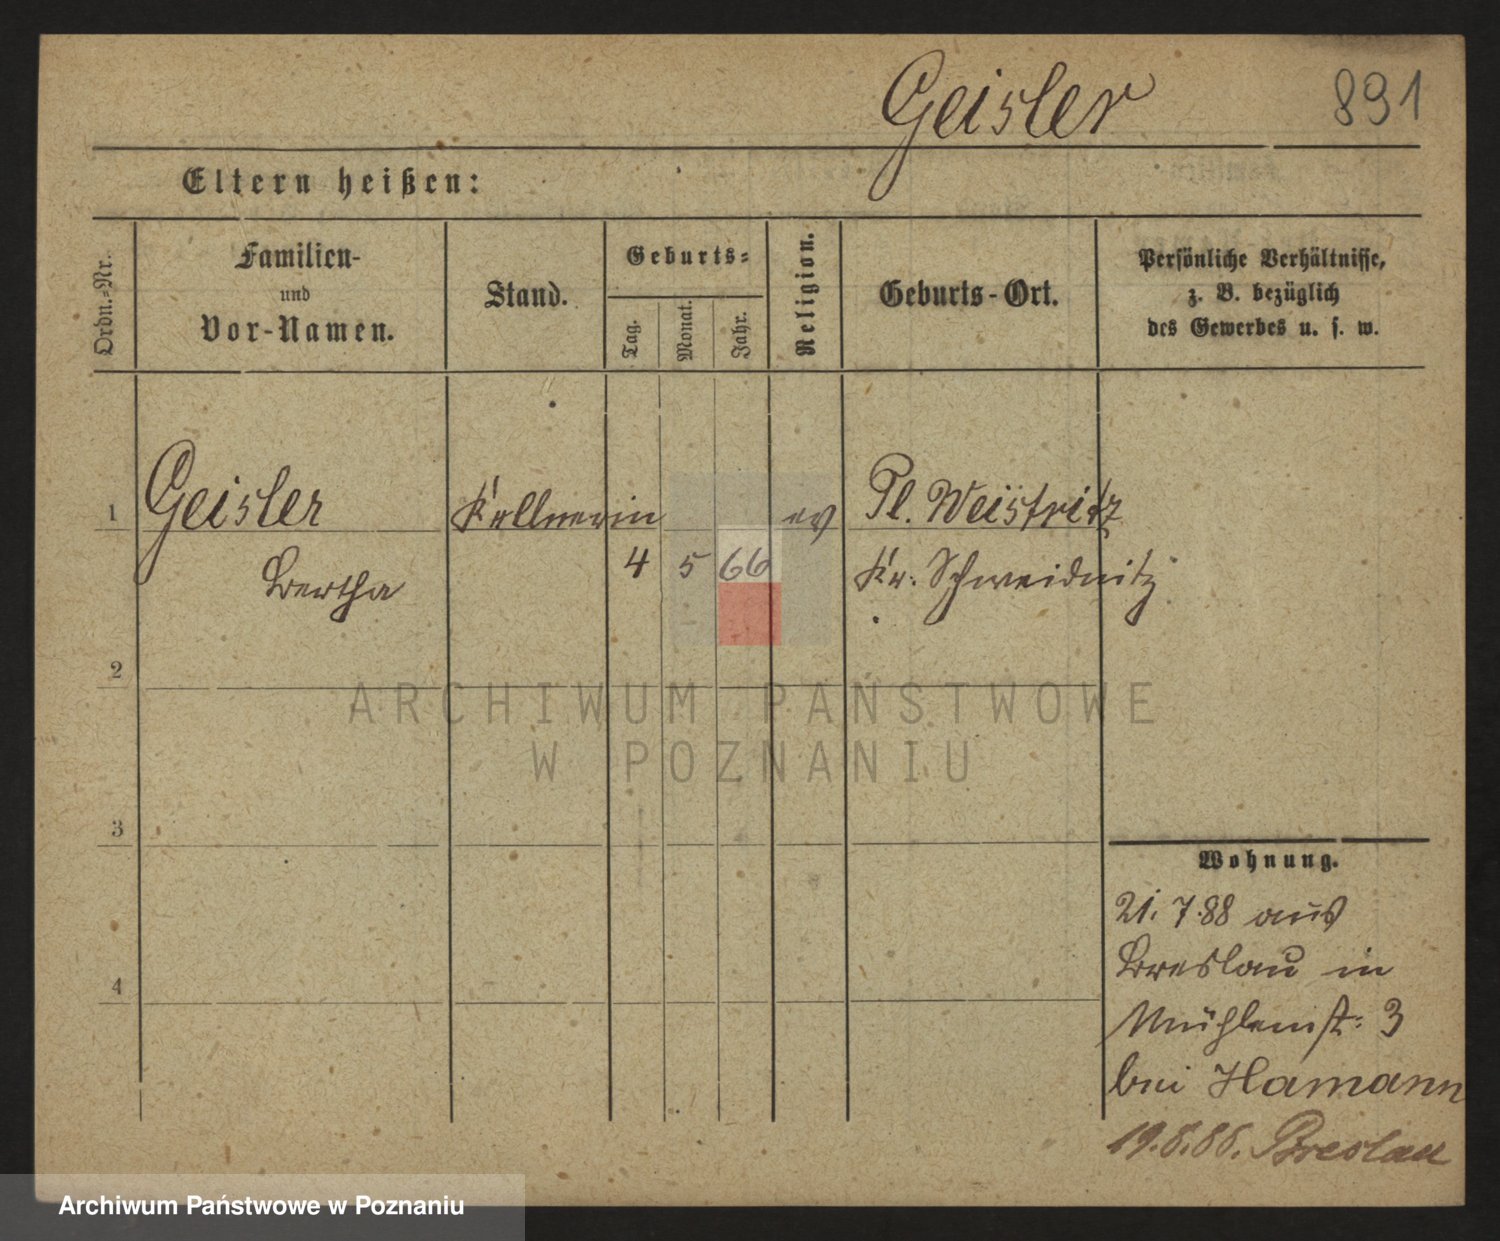 Geisler 891
Eltern heißen:
Ordn.-Nr.
Familien-
und
Vor-Namen.
Stand.
Geburts-
Tag.
Monat.
Jahr.
Religion.
Geburts-Ort.
Persönliche Verhältnisse,
z. B. bezüglich
des Gewerbes u. s. w.
1 Geisler Kellnerin ev Pl. Weistritz
Bertha 4 5 66 Kr. Schweidnitz
2
ARCHIWUM PAŃSTWOWE
W POZNANIU
3
Wohnung.
21. 7. 88 aus
Breslau in
4
Mühlenst: 3
bei Hamann
Breslau
Archiwum Państwowe w Poznaniu